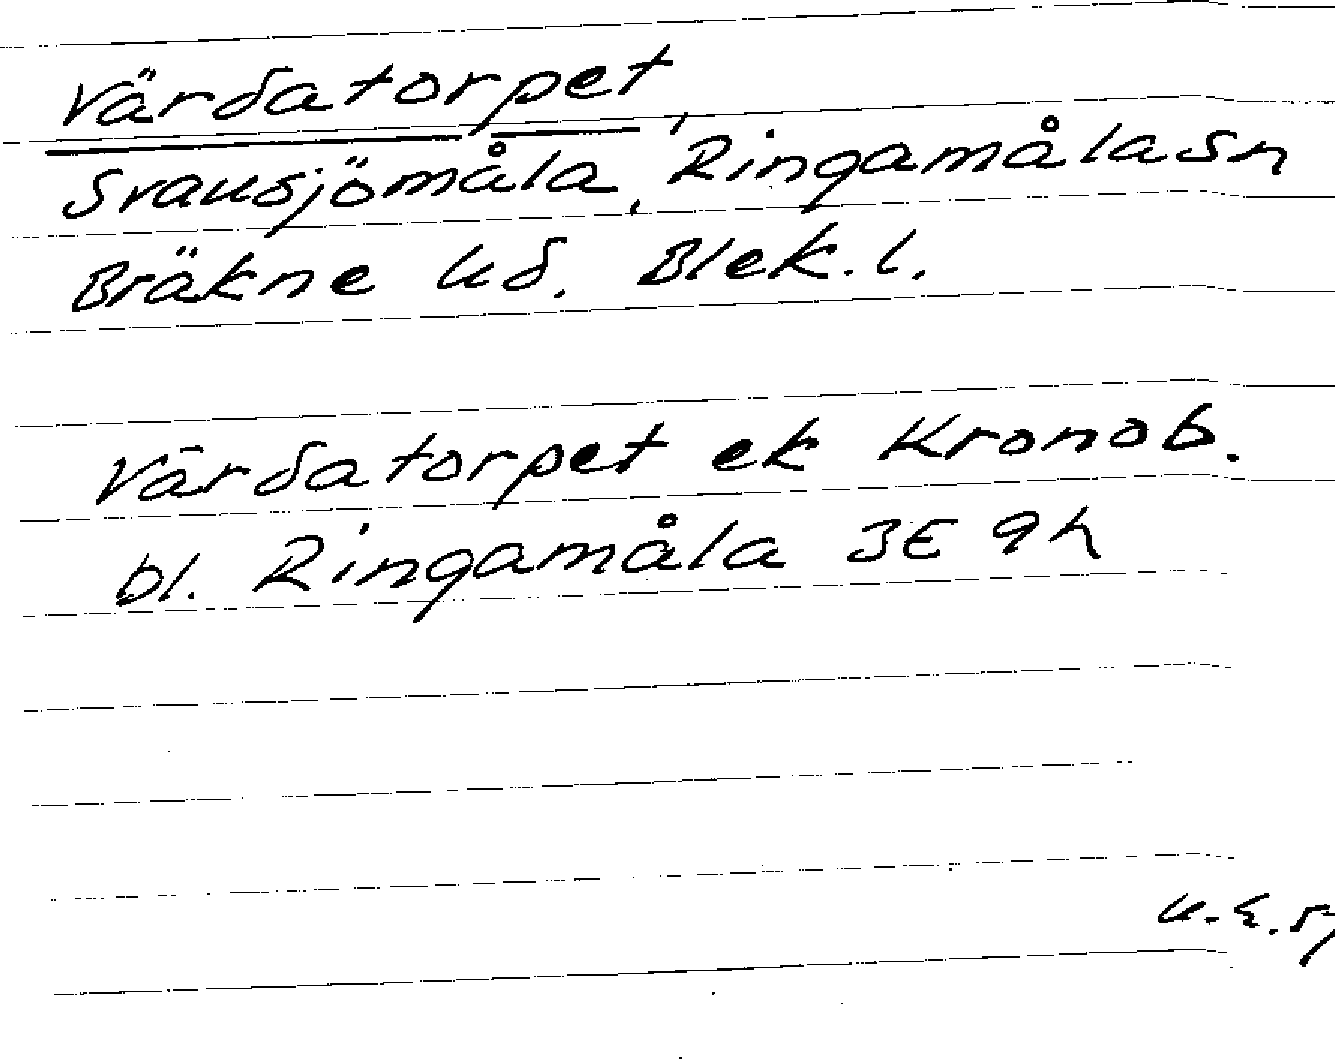 Värdatorpet,
Svansjömåla, Ringamåla Sn
Bräkne Hd. Blek. l.
Värdatorpet ek Kronob.
bl. Ringamåla 3E 9h